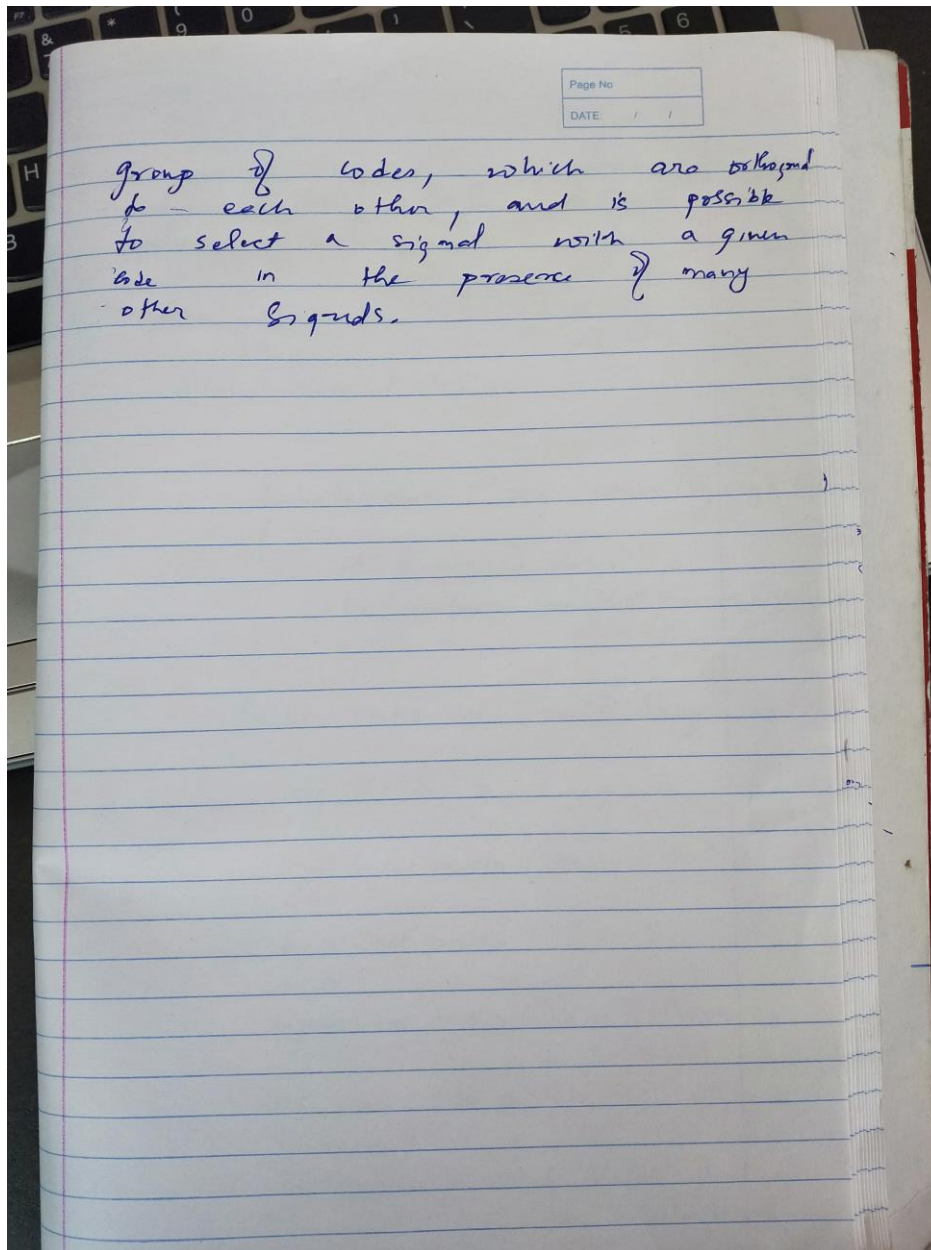 Page No
DATE: / /
group of codes, which are orthogonal
to each other, and is possible
to select a signal with a given
code in the presence of many
other signals.